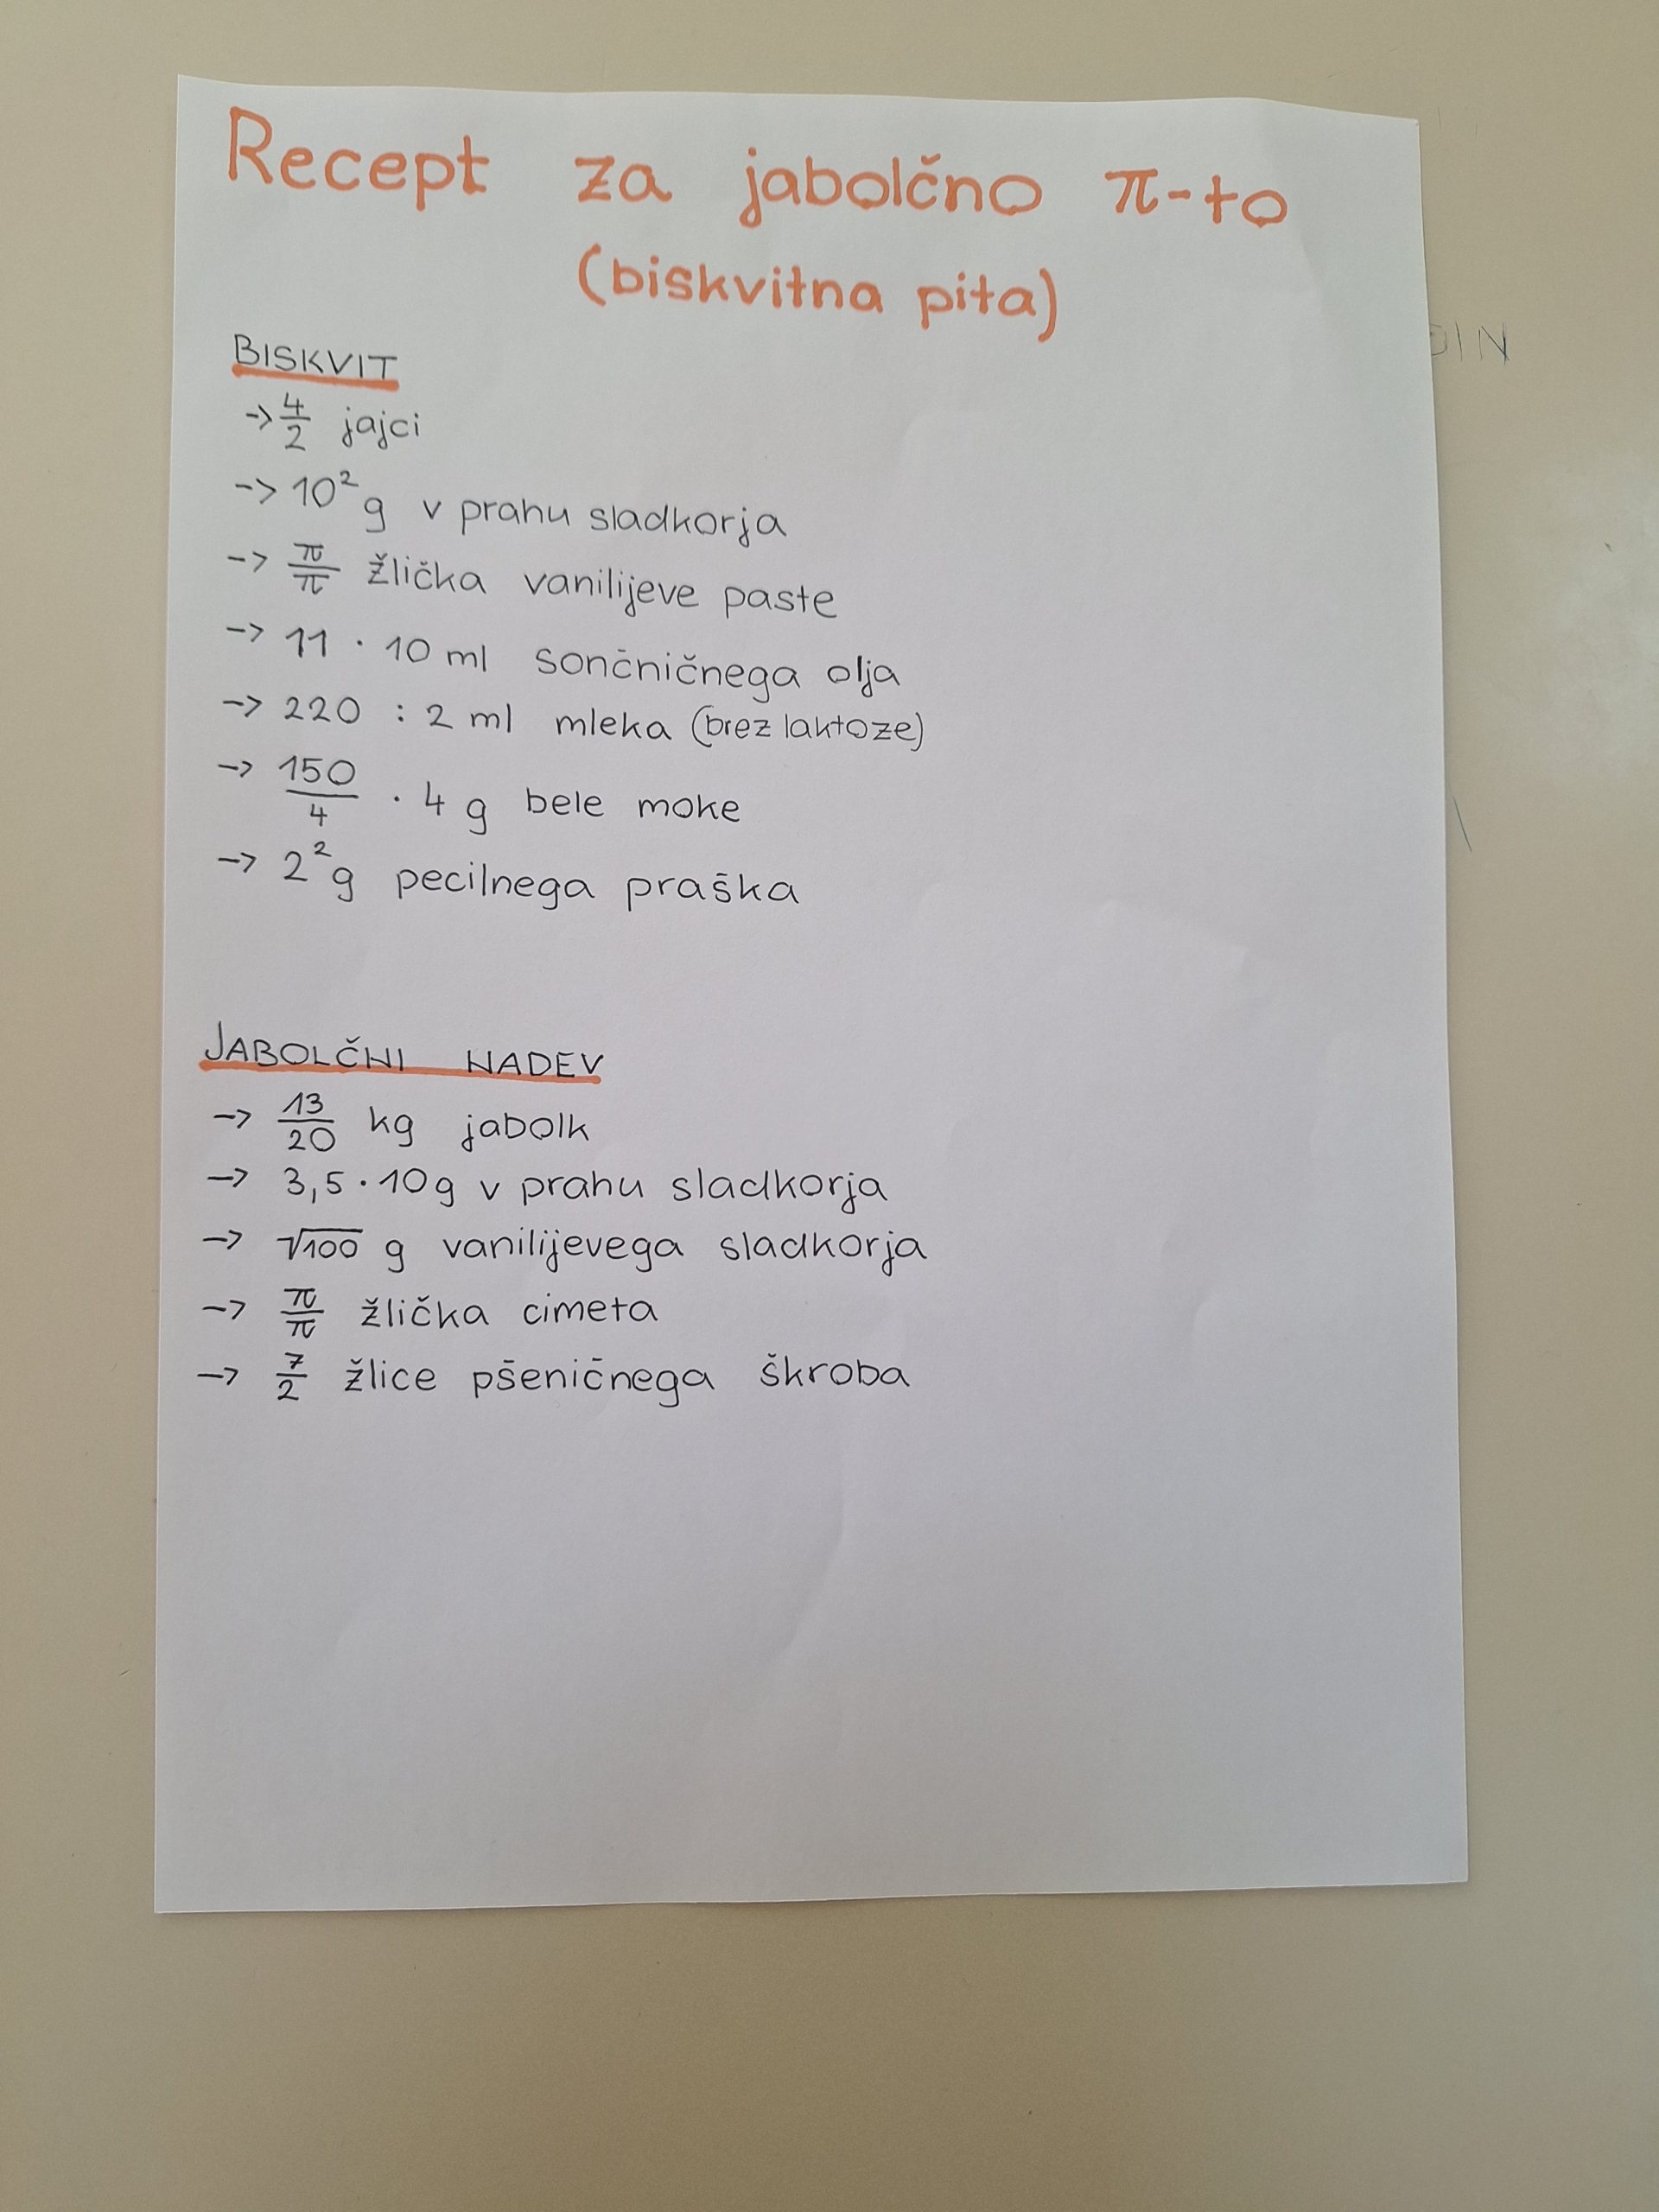 Recept za jabolčno π-to
(biskvitna pita)
BISKVIT
-> 4/2 jajci
-> 10² g v prahu sladkorja
-> π/π žlička vanilijeve paste
-> 11 · 10 ml sončničnega olja
-> 220 : 2 ml mleka (brez laktoze)
-> 150/4 · 4 g bele moke
-> 2² g pecilnega praška
JABOLČNI NADEV
-> 13/20 kg jabolk
-> 3,5 · 10g v prahu sladkorja
-> √100 g vanilijevega sladkorja
-> π/π žlička cimeta
-> 7/2 žlice pšeničnega škroba